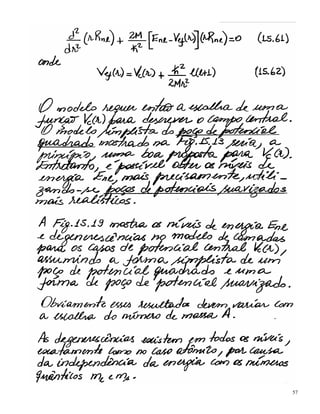 d²/dr² (rRnl) + 2M/ħ² [Enl - Vef(r)](rRnl) = 0 (I.5.61)
onde
Vef(r) = Vc(r) + ħ²/2Mr² l(l+1) (I.5.62)
O modelo requer então a escolha de uma
função Vc(r) para descrever o campo central.
O modelo simplista do poço de potencial
quadrado mostrado na Fig. I.5.13 seria, a
princípio, uma boa proposta para Vc(r).
Entretanto, é possível obter os níveis de
energia Enl, mais precisamente, utili-
zando-se poços de potenciais suavizados
mais realísticos.
A Fig. I5.19 mostra os níveis de energia Enl
e degenerescências no modelo de camadas
para os casos de potencial central Vc(r),
assumindo a forma simplista de um
poço de potencial quadrado e uma
forma de poço de potencial suavizado.
Obviamente esses resultados devem variar com
a escolha do número de massa A.
As degenerescências existem em todos os níveis,
exatamente como no caso atômico, por causa
da independência da energia com os números
quânticos ml e ms.
57